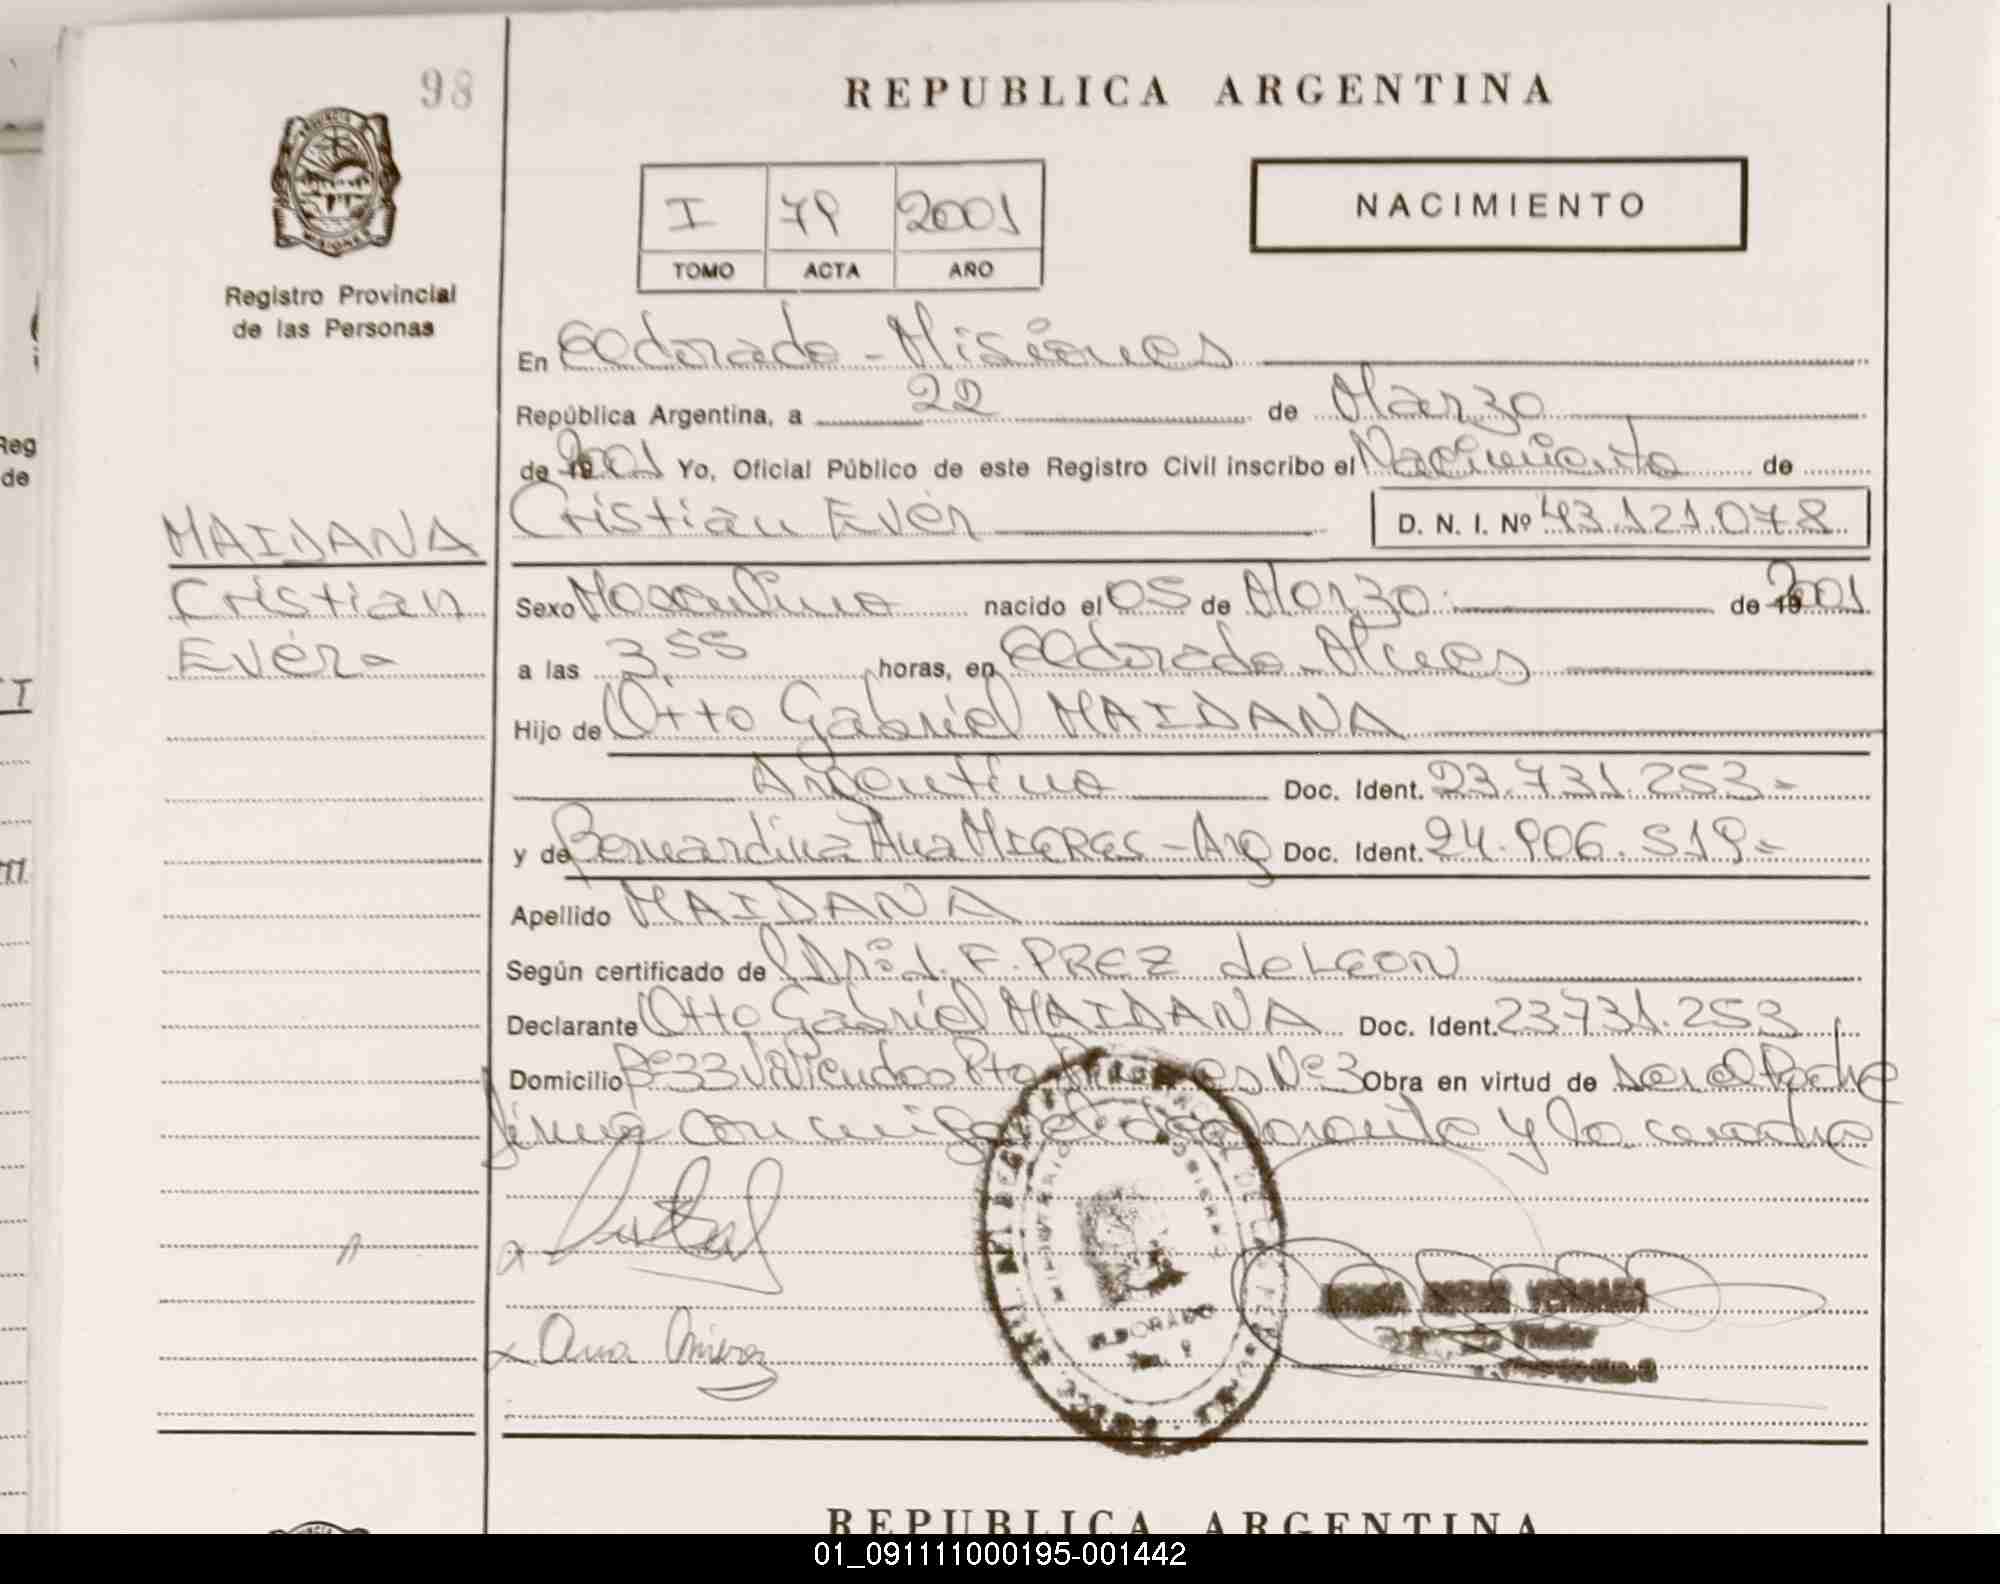 98
REPUBLICA ARGENTINA
PROVINCIA
MISIONES
Registro Provincial
de las Personas
I 79 2001
TOMO ACTA AÑO
NACIMIENTO
En Eldorado - Misiones
República Argentina, a 22 de Marzo
de 19 2001 Yo, Oficial Público de este Registro Civil inscribo el Nacimiento de
Cristian Evér D. N. I. Nº 43.121.078
MAIDANA
Cristian
Evér-
Sexo Masculino nacido el 05 de Marzo. de 19 2001
a las 3,55 horas, en Eldorado - Mnes
Hijo de Otto Gabriel MAIDANA
Argentino Doc. Ident. 23.731.253-
y de Bernardina Ana MIERES - Arg Doc. Ident. 24.906.519-
Apellido MAIDANA
Según certificado de F. PREZ de LEON
Declarante Otto Gabriel MAIDANA Doc. Ident. 23.731.253
Domicilio Bº 33 Viviendas Pto Nº 3 Obra en virtud de ser el Padre
firma conmigo y la madre
x
x Ana Mierez
ELDORADO
REPUBLICA ARGENTINA
01_091111000195-001442